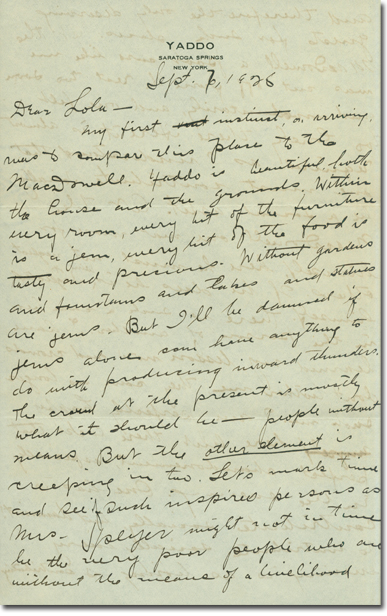 YADDO
SARATOGA SPRINGS
NEW YORK
Sept. 7, 1928
Dear Lola—
My first instinct, on arriving,
was to compare this place to the
MacDowell. Yaddo is beautiful, both
the house and the grounds. Within
every room, every bit of the furniture
is a jem, every bit of the food is
tasty and precious. Without gardens
and fountains and lakes and statues
are jems. But I'll be damned if
jems alone can have anything to
do with producing inward thunders.
The crowd at the present is mostly
what it should be— people without
means. But the other element is
creeping in too. Let's mark time
and see if such inspired persons as
Mrs. Speyer might not in time
be the very poor people who are
without the means of a livelihood